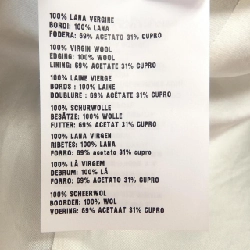 100% LANA VERGINE
BORDI: 100% LANA
FODERA: 69% ACETATO 31% CUPRO
100% VIRGIN WOOL
EDGING: 100% WOOL
LINING: 69% ACETATE 31% CUPRO
100% LAINE VIERGE
BORDS : 100% LAINE
DOUBLURE : 69% ACETATE 31% CUPRO
100% SCHURWOLLE
BESÄTZE: 100% WOLLE
FUTTER: 69% ACETAT 31% CUPRO
100% LANA VIRGEN
RIBETES: 100% LANA
FORRO: 69% acetato 31% cupro
100% LÃ VIRGEM
DEBRUM: 100% LÃ
FORRO: 69% ACETATO 31% CUPRO
100% SCHEERWOL
BOORDEN: 100% WOL
VOERING: 69% ACETAAT 31% CUPRO